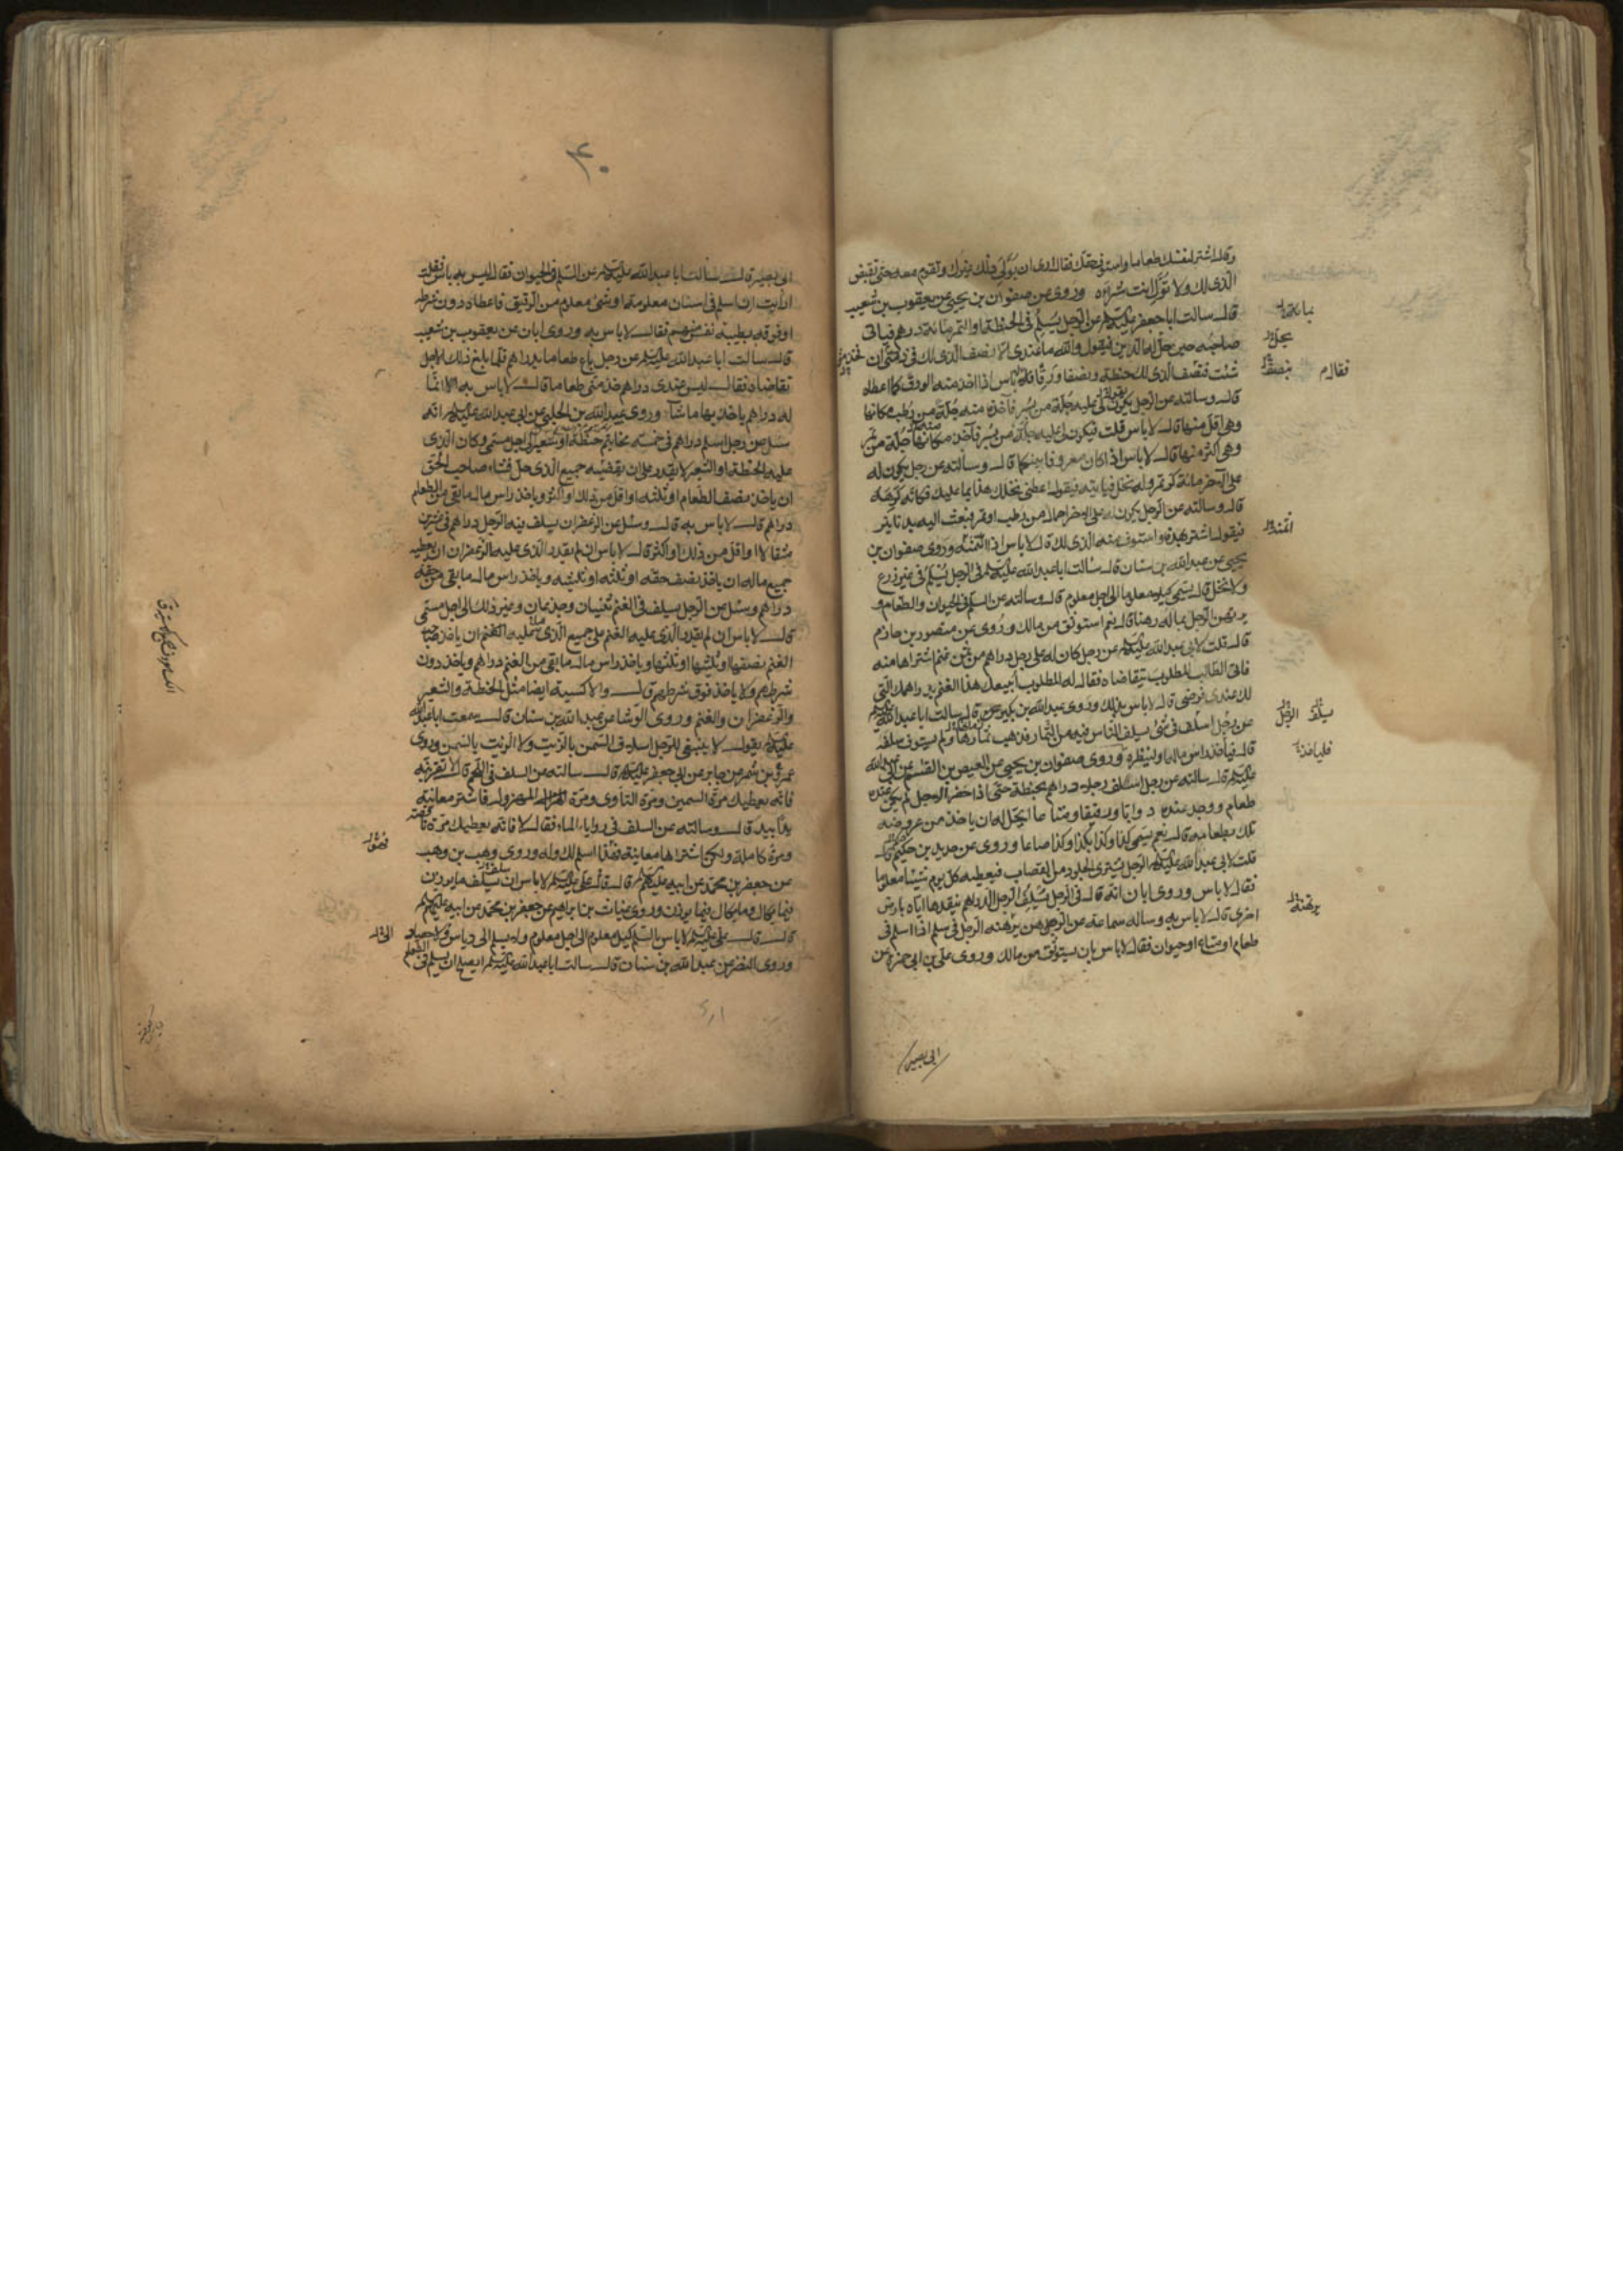 وقال اشتر لنفسك طعاما واستوف حقك فقال ارى ان يولى ذلك غيرك وتقوم معه حتى تقبض
الذى لك ولا تولى انت شراه وروى عن صفوان بن يحيى عن يعقوب بن شعيب
قال سالت ابا جعفر عليه السلام عن الرجل يسلم فى الحنطة او التمر مائة درهم فياتى
صاحبه حين حل له الدين فيقول والله ما عندى الا نصف الذى لك فخذ منى ان
شئت فنصف الذى لك حنطة ونصفا ورقا قال لا باس اذا اخذ منه الورق كما اعطاه
قال وسالته عن الرجل يكون لى عليه جلة من بسر فآخذ منه جلة من رطب مكانها
وهى اقل منها قال لا باس قلت فيكون لى عليه جلة من بسر فآخذ مكانها جلة من تمر
وهى اكثر منها قال لا باس اذا كان معروفا بينكما قال وسالته عن رجل يكون له
على الآخر مائة كر تمر وله نخل فياتيه فيقول اعطنى نخلك هذا بما عليك فكانه كرهه
قال وسالته عن الرجل يكون له على الاخر احمال من رطب او تمر فيبعث اليه بدنانير
فيقول اشتر بهذه واستوف منه الذى لك قال لا باس اذا ائتمنه وروى صفوان بن
يحيى عن عبد الله بن سنان قال سالت ابا عبد الله عليه السلم فى الرجل يسلم فى غير زرع
ولا نخل قال يسمى كيلا معلوما الى اجل معلوم قال وسالته عن السلم فى الحيوان والطعام و
يرتهن الرجل بماله رهنا قال نعم استوثق من مالك وروى عن منصور بن حازم
قال قلت لابى عبد الله عليه السلم عن رجل كان له على رجل دراهم من ثمن غنم اشتراها منه
فاتى الطالب المطلوب يتقاضاه فقال له المطلوب ابيعك هذا الغنم بدراهمك التى
لك عندى فرضى قال لا باس بذلك وروى عبد الله بن بكير قال سالت ابا عبد الله عليه السلم
عن رجل اسلف فى شئ يسلف الناس فيه من الثمار فذهب ثمارها ولم يستوف سلفه
قال فياخذ راس ماله او لينظره وروى صفوان بن يحيى عن العيص بن القسم عن ابى عبد الله
عليه السلم قال سالته عن رجل اسلف رجلا دراهم بحنطة حتى اذا حضر الاجل لم يكن عنده
طعام ووجد عنده دوابا ورقيقا ومتاعا ايحل له ان ياخذ من عروضه
تلك بطعامه قال نعم يسمى كذا وكذا بكذا وكذا صاعا وروى عن حديد بن حكيم قال
قلت لابى عبد الله عليه السلم الرجل يشترى الجلود من القصاب فيعطيه كل يوم شيئا معلوما
فقال لا باس وروى ابان انه قال فى الرجل يسلف الرجل الدراهم ينقدها اياه بارض
اخرى قال لا باس به وساله سماعة عن الرجل يرهنه الرجل فى سلم اذا اسلم فى
طعام او متاع او حيوان فقال لا باس بان يستوثق من مالك وروى على بن ابى حمزة عن
ابى بصير
فقال
بنصف
يسلف الرجل
فلياخذ
ابى بصير قال سالت ابا عبد الله عليه السلم عن السلم فى الحيوان فقال ليس به باس فقلت
ارايت ان اسلم فى اسنان معلومة او شئ معلوم من الرقيق فاعطاه دون شرطه
او فوقه بطيبة نفس منهم فقال لا باس به وروى ابان عن يعقوب بن شعيب
قال سالت ابا عبد الله عليه السلم عن رجل باع طعاما بدراهم فلما بلغ ذلك الاجل
تقاضاه فقال ليس عندى دراهم خذ منى طعاما قال لا باس به انما
له دراهم ياخذ بها ما شاء وروى عبيد الله بن الحلبى عن ابى عبد الله عليه السلم انه
سئل عن رجل اسلم دراهم فى خمسة مخاتيم حنطة او شعير الى اجل مسمى وكان الذى
عليه الحنطة او الشعير لا يقدر على ان يقضيه جميع الذى حل فشاء صاحب الحق
ان ياخذ نصف الطعام او ثلثه او اقل من ذلك او اكثر وياخذ راس مال ما بقى من الطعام
دراهم قال لا باس به قال وسئل عن الزعفران يسلف فيه الرجل دراهم فى عشرين
مثقالا او اقل من ذلك او اكثر قال لا باس ان لم يقدر الذى عليه الزعفران ان يعطيه
جميع ماله ان ياخذ نصف حقه او ثلثه او ثلثيه وياخذ راس مال ما بقى من حقه
دراهم وسئل عن الرجل يسلف فى الغنم ثنيان وجذعان وغير ذلك الى اجل مسمى
قال لا باس ان لم يقدر الذى عليه الغنم على جميع الذى عليه ان ياخذ صاحب
الغنم نصفها او ثلثها او ثلثيها وياخذ راس مال ما بقى من الغنم دراهم وياخذ دون
شرطهم ولا ياخذ فوق شرطهم قال والاكسية ايضا مثل الحنطة والشعير
والزعفران والغنم وروى الوشا عن عبد الله بن سنان قال سمعت ابا عبد الله
عليه السلم يقول لا ينبغى للرجل اسلاف السمن بالزيت ولا الزيت بالسمن وروى
عمرو بن شمر عن جابر عن ابى جعفر عليه السلم قال سالته عن السلف فى اللحم قال لا تقربنه
فانه يعطيك مرة السمين ومرة التاوى ومرة المهزول فاشتر معاينة
يدا بيد قال وسالته عن السلف فى روايا الماء فقال لا فانه يعطيك مرة ناقصة
ومرة كاملة ولكن اشتراها معاينة فهذا اسلم لك وله وروى وهب بن وهب
عن جعفر بن محمد عن ابيه عليهم السلم قال قال على عليه السلم لا باس ان يسلف ما يوزن
فيما يكال وما يكال فيما يوزن وروى غياث بن ابراهيم عن جعفر بن محمد عن ابيه عليهم السلم
قال قال على عليه السلم لا باس بالسلم كيل معلوم الى اجل معلوم ولا يسلم الى دياس ولا حصاد
وروى النضر عن عبد الله بن سنان قال سالت ابا عبد الله عليه السلم ايصلح ان يسلم فى الطعام